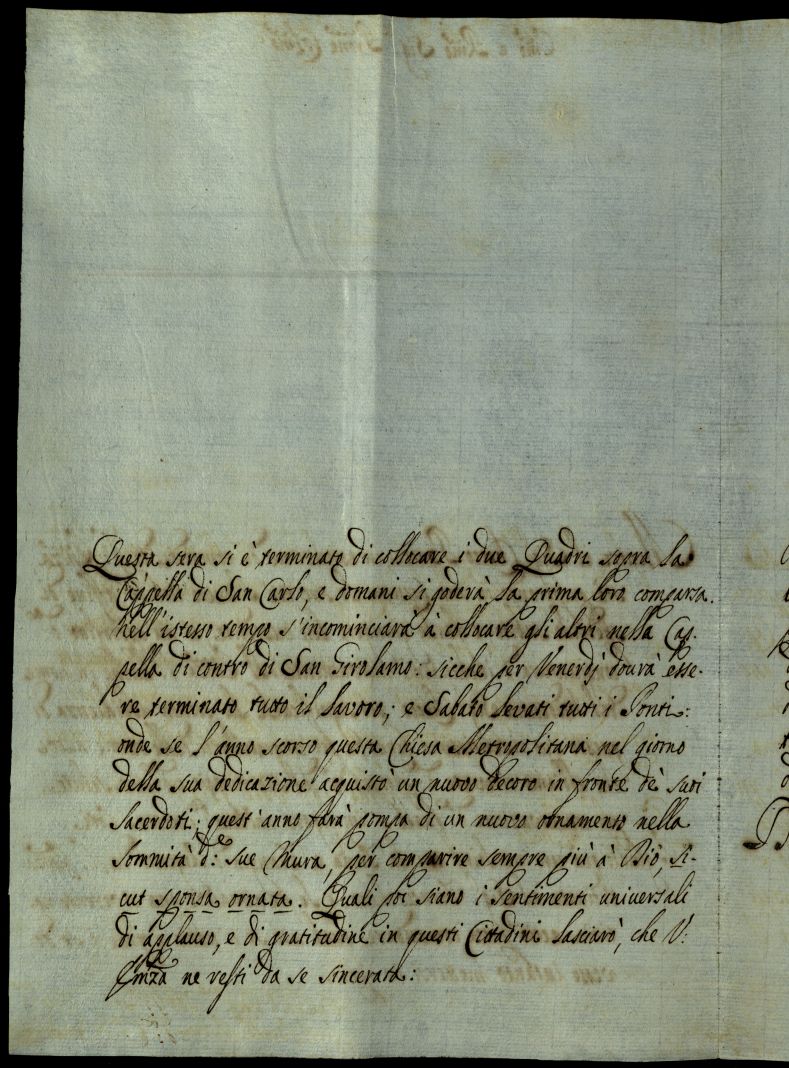 Questa sera si è terminato di collocare i due Quadri sopra la
Cappella di San Carlo, e domani si goderà la prima loro comparsa.
Nell'istesso tempo s'incominciarà à collocare gli altri nella Cap-
pella di contro di San Girolamo: sicche per Venerdj dourà esse-
re terminato tutto il lavoro; e Sabato levati tutti i Ponti:
onde se l'anno scorso questa Chiesa Metropolitana nel giorno
della sua dedicazione acquistò un nuovo decoro in fronte dè suoi
Sacerdoti; quest'anno farà pompa di un nuovo ornamento nella
Sommità d.e sue Mura, per comparire sempre più à Dio, si-
cut sponsa ornata. Quali poi siano i sentimenti universali
di applauso, e di gratitudine in questi Cittadini lasciarò, che V:
Em̃za ne resti da se sincerata: